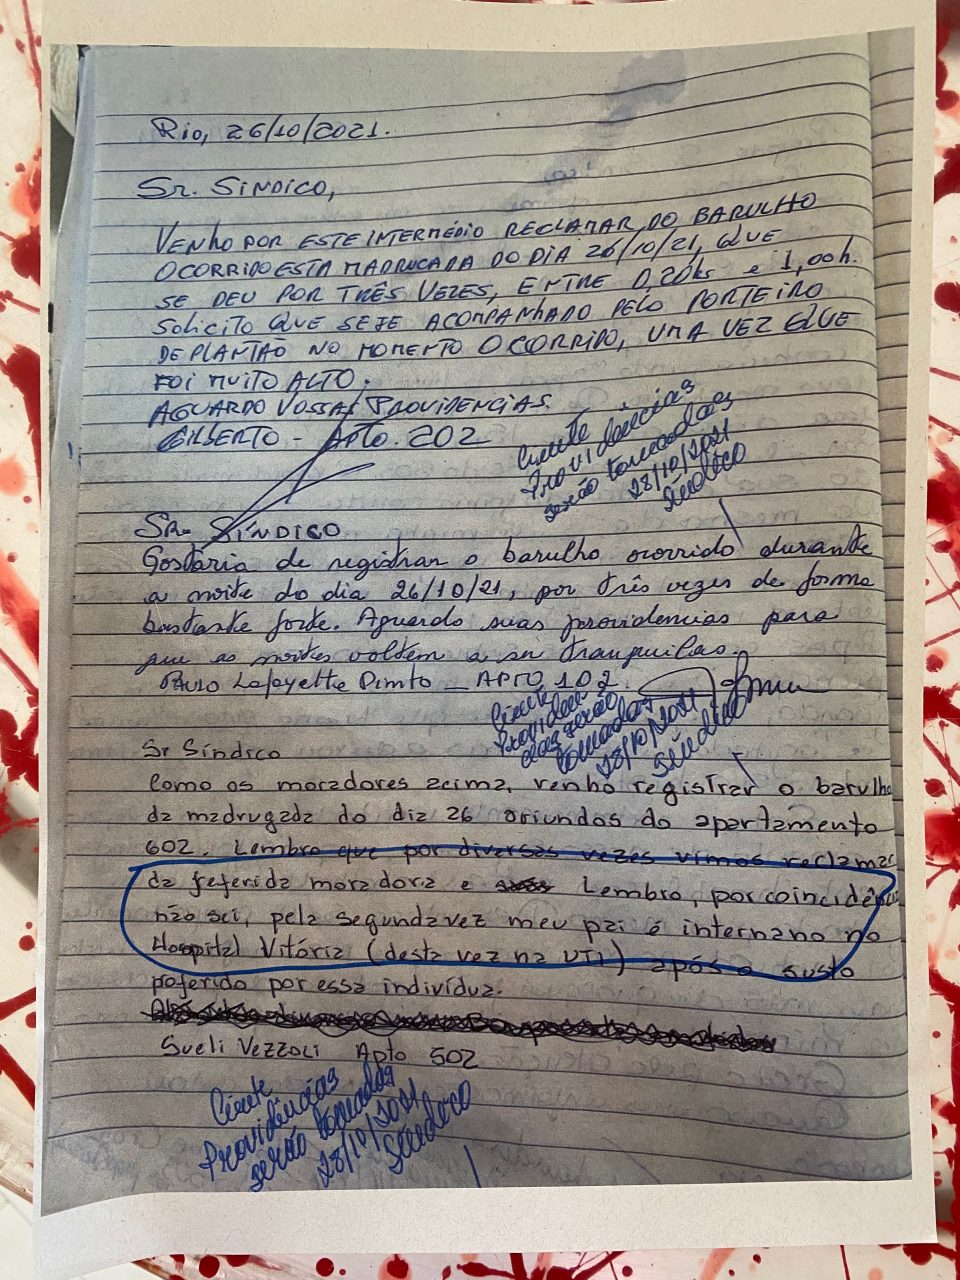 Rio, 26/10/2021.
Sr. SÍNDICO,
VENHO POR ESTE INTERMÉDIO RECLAMAR DO BARULHO
OCORRIDO ESTA MADRUGADA DO DIA 26/10/21, QUE
SE DEU POR TRÊS VEZES, ENTRE 0,20hs e 1,00h.
SOLICITO QUE SEJE ACOMPANHADO PELO PORTEIRO
DE PLANTÃO NO MOMENTO OCORRIDO, UMA VEZ QUE
FOI MUITO ALTO.
AGUARDO VOSSAS PROVIDENCIAS.
GILBERTO - APTO. 202
Ciente
Providências
serão tomadas
28/10/2021
Síndico
SR. SÍNDICO
Gostaria de registrar o barulho ocorrido durante
a noite do dia 26/10/21, por três vezes de forma
bastante forte. Aguardo suas providencias para
que as noites voltem a ser tranquilas.
Paulo Lafayette Pinto - APTO 102
Ciente
Providên
cias serão
tomadas
28/10/2021
Síndico
Sr Síndico
Como os moradores acima, venho registrar o barulho
da madrugada do dia 26 oriundos do apartamento
602. Lembro que por diversas vezes vimos reclamar
da referida moradora e Lembro, por coincidência
não sei, pela segunda vez meu pai é internano no
Hospital Vitória (desta vez na UTI) após o susto
poferido por essa indivídua.
Sueli Vezzoli Apto 502
Ciente
Providências
serão tomadas
28/10/2021
Síndico